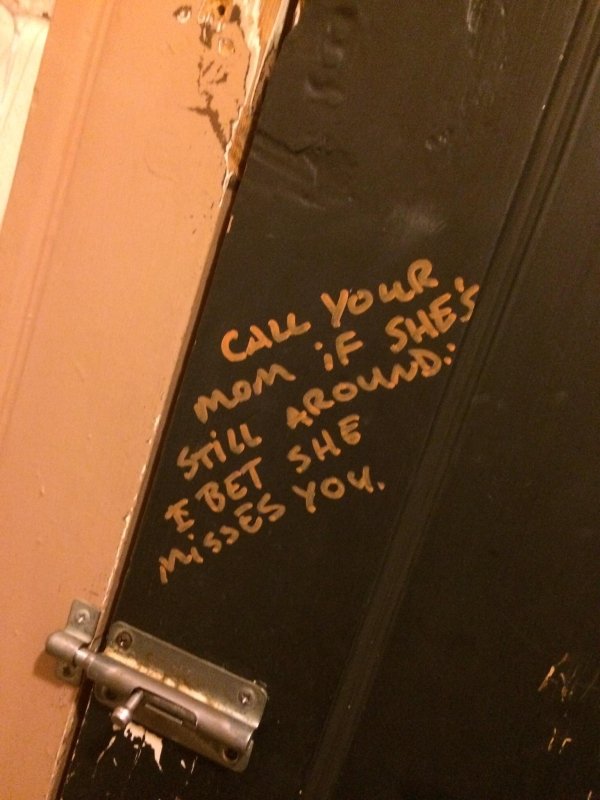 CALL YOUR
MOM iF SHE'S
STiLL AROUND.
I BET SHE
MiSSES YOU.